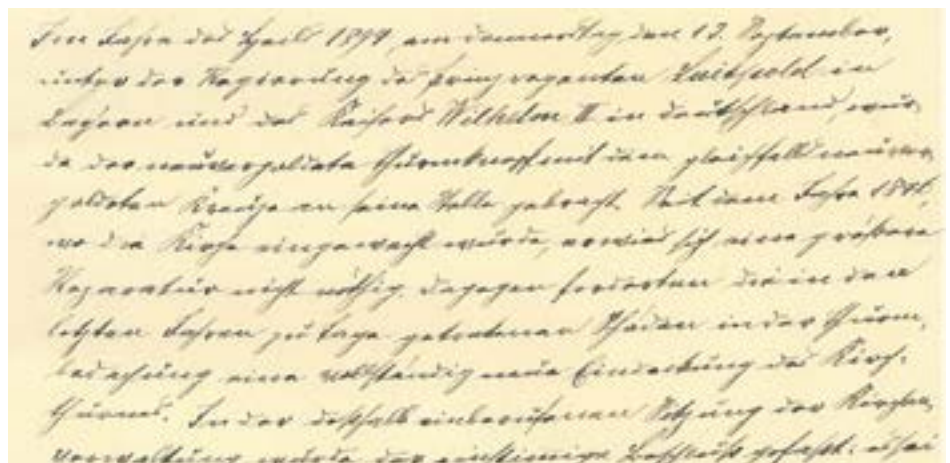 Im Jahre des Heils 1894, am Donnerstag, den 13. September,
unter der Regierung des Prinzregenten Luitpold in
Bayern und des Kaisers Wilhelm II in Deutschland, wur-
de der neuvergoldete Thurmknopf mit dem gleichfalls neuver-
goldeten Kreuze an seine Stelle gebracht. Seit dem Jahre
wo die Kirche eingeweiht wurde, erwies sich eine größere
Reparatur nicht nöthig, dagegen forderten die in den
letzten Jahren zu Tage getretenen Schäden in der Thurm-
bedachung eine vollständig neue Eindeckung des Kirch-
thurmes. In der deßhalb einberufenen Sitzung der Kirchen-
verwaltung wurde der einstimmige Beschluß gefaßt: